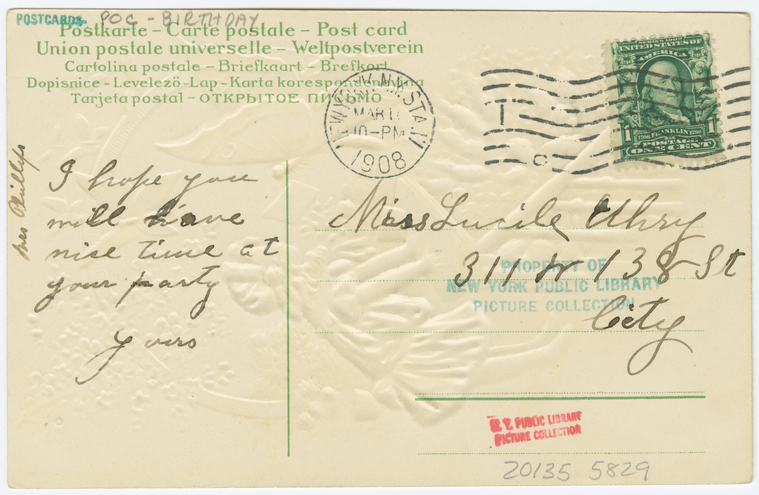 POSTCARDS
POC - BIRTHDAY
Postkarte – Carte postale – Post card
Union postale universelle – Weltpostverein
Cartolina postale – Briefkaart – Brefkort
Dopisnice – Levelező-Lap – Karta korespondencyjna
Tarjeta postal – ОТКРЫТОЕ ПИСЬМО
MAR 11
10-PM
1908
UNITED STATES OF
AMERICA
1 FRANKLIN 1
POSTAGE
ONE CENT
I hope you
will have
nise time at
your party
yours
Phillips
Miss Lucile Uhry
311 W 138 St
City
PROPERTY OF
NEW YORK PUBLIC LIBRARY
PICTURE COLLECTION
N. Y. PUBLIC LIBRARY
PICTURE COLLECTION
20135 5829